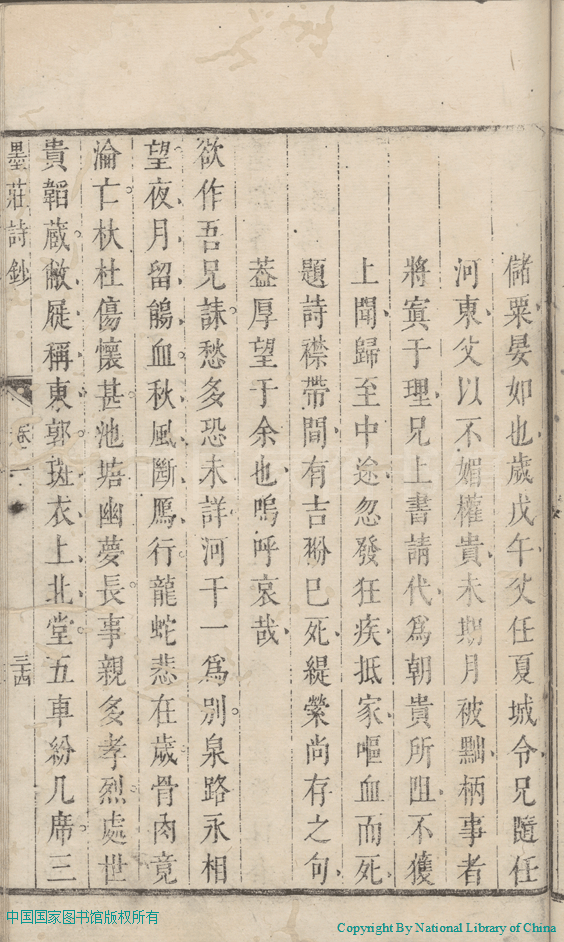 儲粟晏如也歲戊午父任夏城令兄隨任
河東父以不媚權貴未期月被黜柄事者
將寘于理兄上書請代爲朝貴所阻不獲
上聞歸至中途忽發狂疾抵家嘔血而死
題詩襟帶間有吉翂已死緹縈尚存之句
葢厚望于余也嗚呼哀哉
欲作吾兄誄愁多恐未詳河干一爲別泉路永相
望夜月留鵑血秋風斷鴈行龍蛇悲在歲骨肉竟
淪亡杕杜傷懷甚池塘幽夢長事親多孝烈處世
貴韜蔵敝屣稱東郭斑衣上北堂五車紛几席三
墨莊詩鈔
卷二
三十四
中国国家图书馆版权所有
Copyright By National Library of China